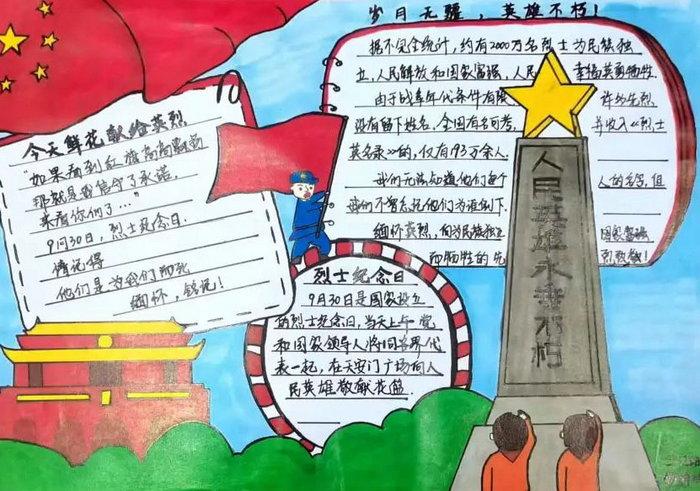 岁月无疆，英雄不朽！
据不完全统计，约有2000万名烈士为民族独
立，人民解放和国家富强，人民 幸福英勇牺牲
由于战争年代条件有限 许多先烈
没有留下姓名，全国有名可考， 并收入《烈士
英名录》的，仅有193万余人。
我们无法知道他们每个 人的名字，但
我们不曾忘记他们为谁倒下。
缅怀英烈，向为民族独立 国家富强
而牺牲的先 烈致敬！
今天鲜花献给英烈
"如果看到红旗高高飘扬
那就是我信守了承诺，
来看你们了…"
9月30日，烈士纪念日，
请记得
他们是为我们而死
缅怀，铭记！
烈士纪念日
9月30日是国家设立
的烈士纪念日，当天上午党
和国家领导人将同各界代
表一起，在天安门广场向人
民英雄敬献花篮
人民英雄永垂不朽